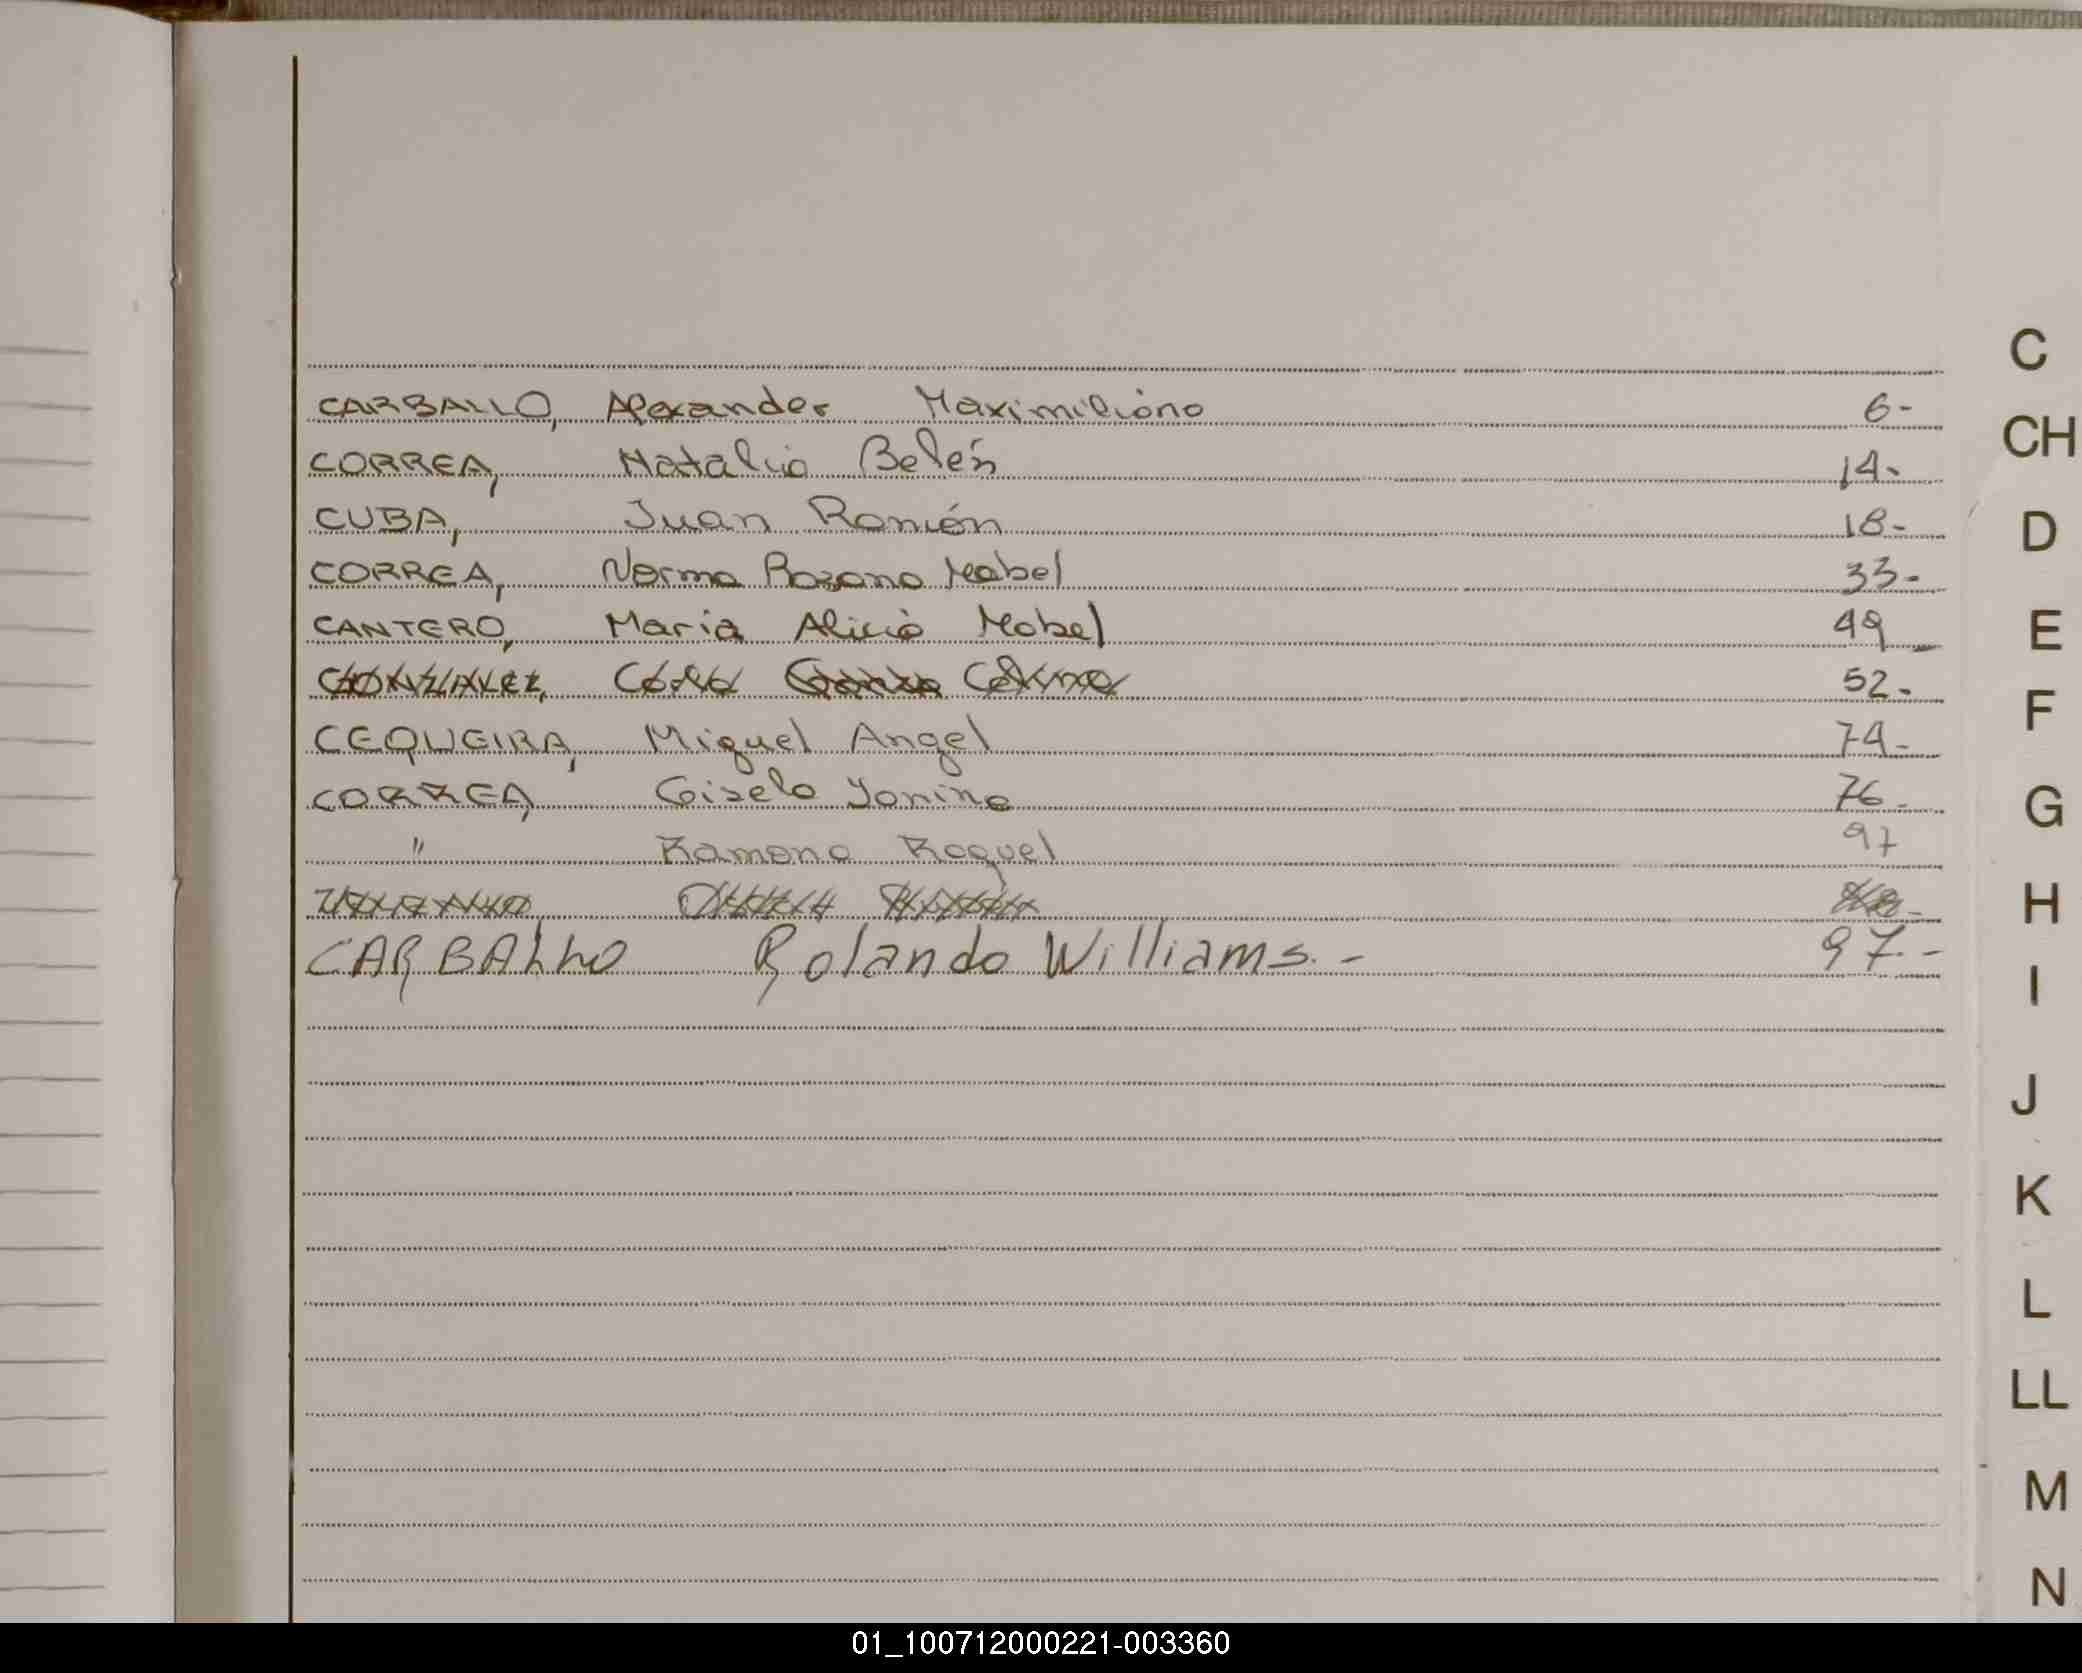 CARBALLO, Alexander Maximiliano 6-
CORREA, Natalia Belén 14-
CUBA, Juan Ramón 18-
CORREA, Norma Rosana Mabel 33-
CANTERO, Maria Alicia Mabel 49-
52-
CEQUEIRA, Miguel Angel 74-
CORREA, Gisela Yanina 76-
" Ramona Raquel 97
CARBALLO Rolando Williams.- 97.-
C
CH
D
E
F
G
H
I
J
K
L
LL
M
N
01_100712000221-003360